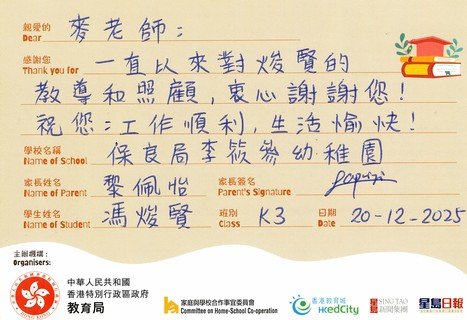 親愛的 麥老師：
Dear
感謝您 一直以來對焌賢的
Thank you for
教導和照顧，衷心謝謝您！
祝您：工作順利，生活愉快！
學校名稱 保良局李筱參幼稚園
Name of School
家長姓名 黎佩怡 家長簽名
Name of Parent Parent's Signature
學生姓名 馮焌賢 班別 K3 日期 20-12-2025
Name of Student Class Date
主辦機構：
Organisers:
中華人民共和國
香港特別行政區政府
教育局
家庭與學校合作事宜委員會
Committee on Home-School Co-operation
香港教育城
HKedCity
星島 SING TAO
新聞集團
星島日報